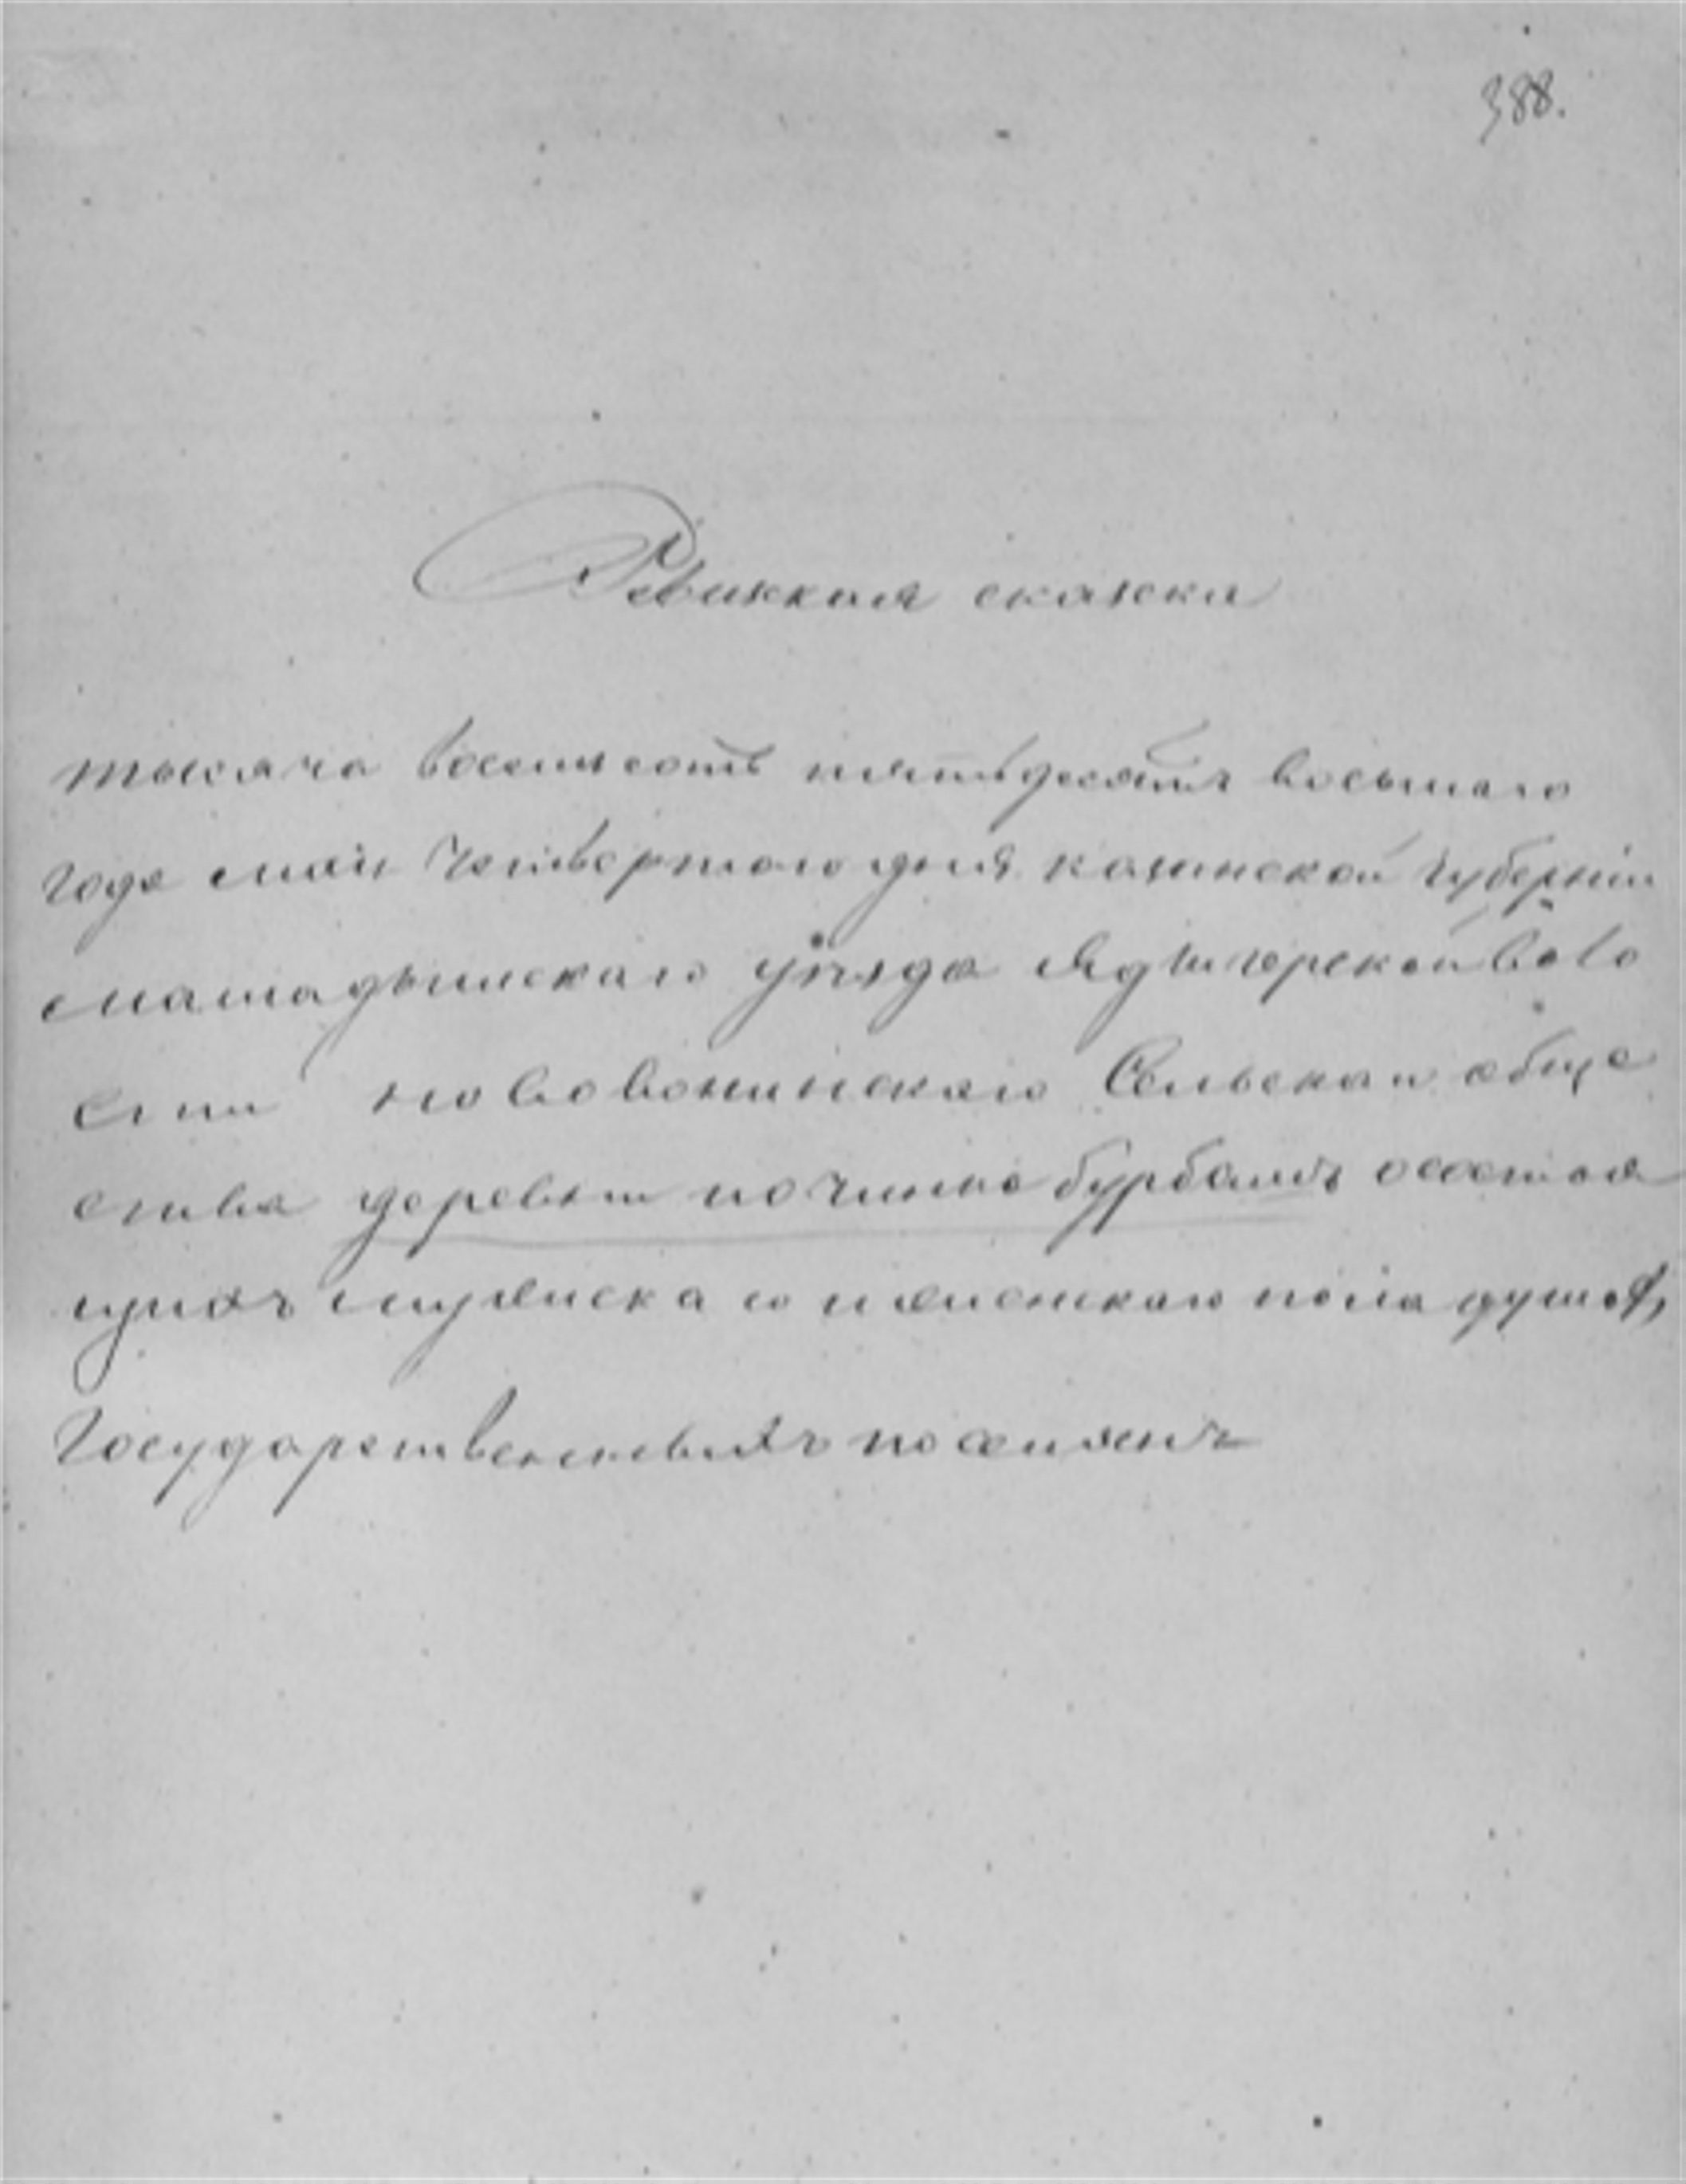 388.
Ревизкая сказка
тысяча восемьсотъ пятьдесятъ восьмаго
года маія четвертаго дня казанской губерніи
мамадышскаго уѣзда Ядыгерской воло
сти новозонинскаго Сельскаго обще
ства деревни починка бурбашъ о состоя
щихъ мужеска и женскаго пола душахъ,
Государственныхъ поселянъ